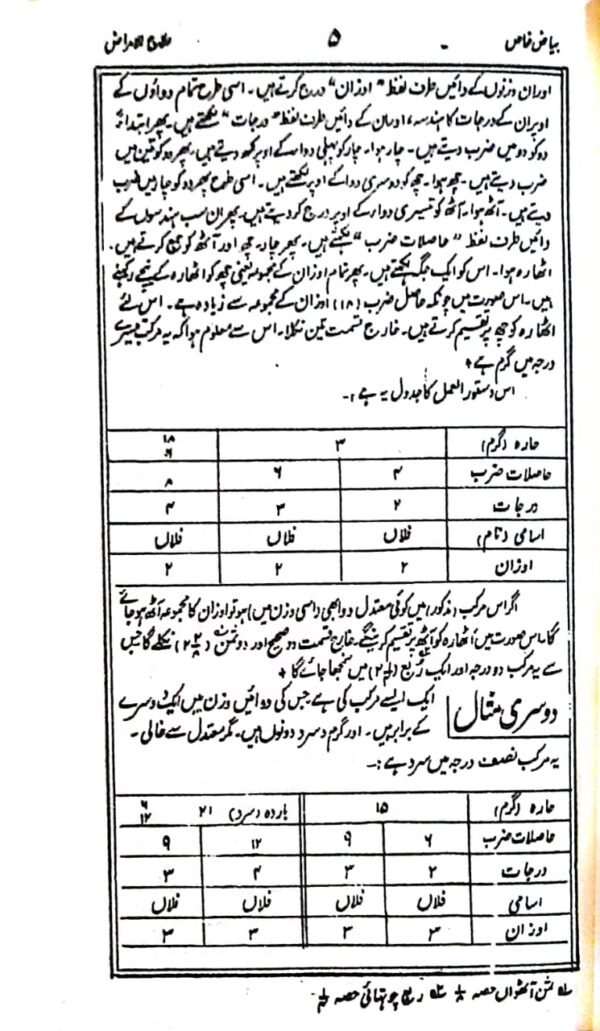 بیاض خاص ۵ علاج الامراض
اور ان وزنوں کے دائیں طرف لفظ "اوزان" درج کرتے ہیں۔ اسی طرح تمام دواؤں کے
اوپر ان کے درجات کا ہندسہ، اور ان کے دائیں طرف لفظ "درجات" لکھتے ہیں۔ پھر ابتداءً
دو کو دو میں ضرب دیتے ہیں۔ چار ہوا۔ چار کو پہلی دوا کے اوپر لکھ دیتے ہیں، پھر دو کو تین میں
ضرب دیتے ہیں۔ چھ ہوا۔ چھ کو دوسری دوا کے اوپر لکھتے ہیں۔ اسی طرح پھر دو کو چار میں ضرب
دیتے ہیں۔ آٹھ ہوا۔ آٹھ کو تیسری دوا کے اوپر درج کر دیتے ہیں۔ پھر ان سب ہندسوں کے
دائیں طرف لفظ "حاصلات ضرب" لکھتے ہیں۔ پھر چار، چھ اور آٹھ کو جمع کرتے ہیں۔
اٹھارہ ہوا۔ اس کو ایک جگہ لکھتے ہیں۔ پھر تمام اوزان کے مجموعہ یعنی چھ کو اٹھارہ کے نیچے رکھتے
ہیں۔ اس صورت میں چونکہ حاصل ضرب (۱۸) اوزان کے مجموعہ سے زیادہ ہے۔ اس لئے
اٹھارہ کو چھ پر تقسیم کرتے ہیں۔ خارج قسمت تین نکلا۔ اس سے معلوم ہوا کہ یہ مرکب تیسرے
درجہ میں گرم ہے ٭
اس دستور العمل کا جدول یہ ہے :۔
حارہ (گرم) ۳ ۱۸ ۶
حاصلات ضرب ۴ ۶ ۸
درجات ۲ ۳ ۴
اسامی (نام) فلاں فلاں فلاں
اوزان ۲ ۲ ۲
اگر اس مرکب (مذکور) میں کوئی معتدل دوا بھی (اسی وزن میں) ہو تو اوزان کا مجموعہ آٹھ ہو جائے
گا۔ اس صورت میں اٹھارہ کو آٹھ پر تقسیم کرینگے۔ خارج قسمت دو صحیح اور دو ثمن (۲ ۲/۸) نکلے گا جس
سے یہ مرکب دو درجہ اور ایک ربع (۲ ۱/۴) میں سمجھا جائے گا ٭
دوسری مثال
ایک ایسے مرکب کی ہے جس کی دوائیں وزن میں ایک دوسرے
کے برابر ہیں۔ اور گرم و سرد دونوں ہیں۔ مگر معتدل سے خالی۔
یہ مرکب نصف درجہ میں سرد ہے :۔
حارہ (گرم) ۱۵ باردہ (سرد) ۲۱ ۶ ۱۲
حاصلات ضرب ۶ ۹ ۱۲ ۹
درجات ۲ ۳ ۴ ۳
اسامی فلاں فلاں فلاں فلاں
اوزان ۳ ۳ ۳ ۳
؎ ثمن آٹھواں حصہ ۱/۸ ؎ ربع چوتھائی حصہ ۱/۴